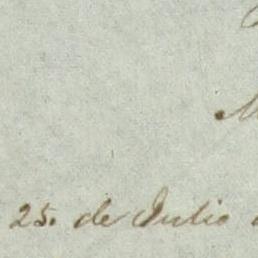 25. de Julio